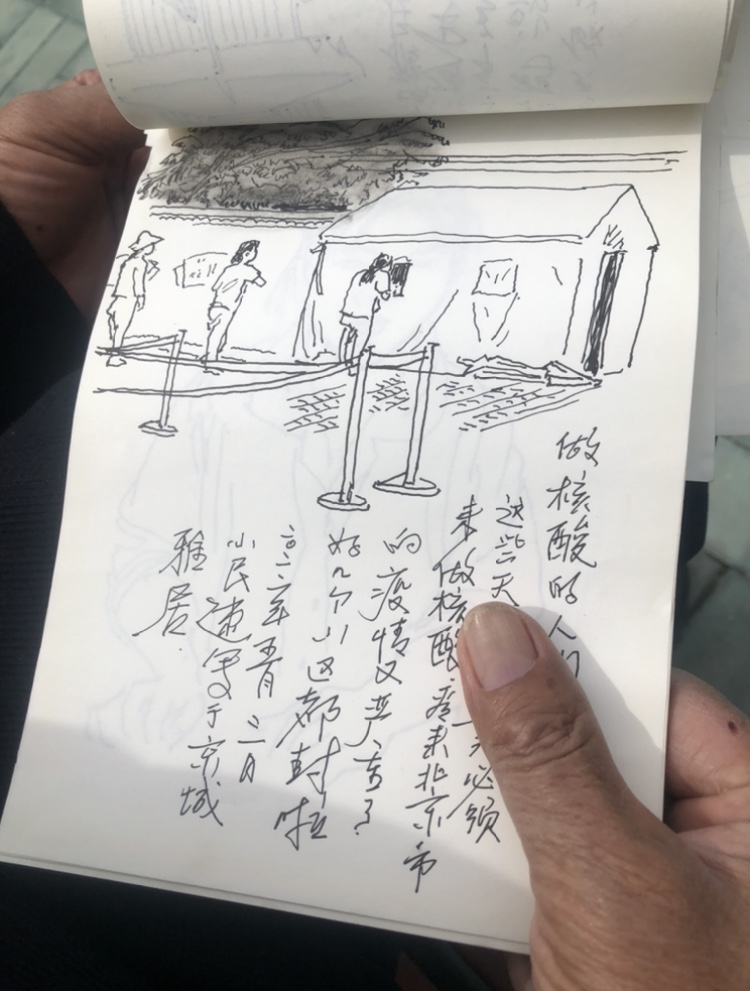 做核酸的人们
这些天 天必须
来做核酸 看来北京市
的疫情又严重了
好几个小区都封啦
二〇二二年五月
小民速写于京城
雅居